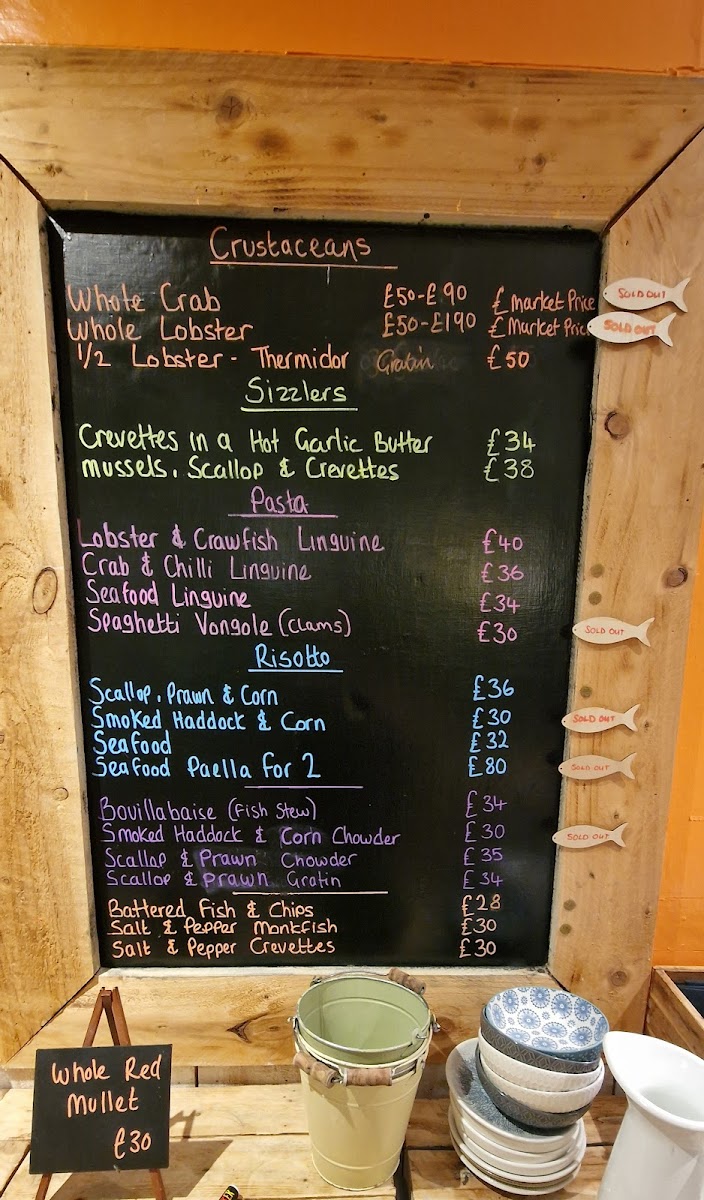 Crustaceans
Whole Crab £50-£90 £ market Price SOLD OUT
Whole Lobster £50-£190 £ Market Price SOLD OUT
1/2 Lobster - Thermidor Gratin £50
Sizzlers
Crevettes in a Hot Garlic Butter £34
mussels, Scallop & Crevettes £38
Pasta
Lobster & Crawfish Linguine £40
Crab & Chilli Linguine £36
Seafood Linguine £34
Spaghetti Vongole (Clams) £30 SOLD OUT
Risotto
Scallop, Prawn & Corn £36
Smoked Haddock & Corn £30 SOLD OUT
Seafood £32
Seafood Paella For 2 £80 SOLD OUT
Bouillabaise (Fish Stew) £34
Smoked Haddock & Corn Chowder £30 SOLD OUT
Scallop & Prawn Chowder £35
Scallop & Prawn Gratin £34
Battered Fish & Chips £28
Salt & Pepper Monkfish £30
Salt & Pepper Crevettes £30
Whole Red
Mullet
£30